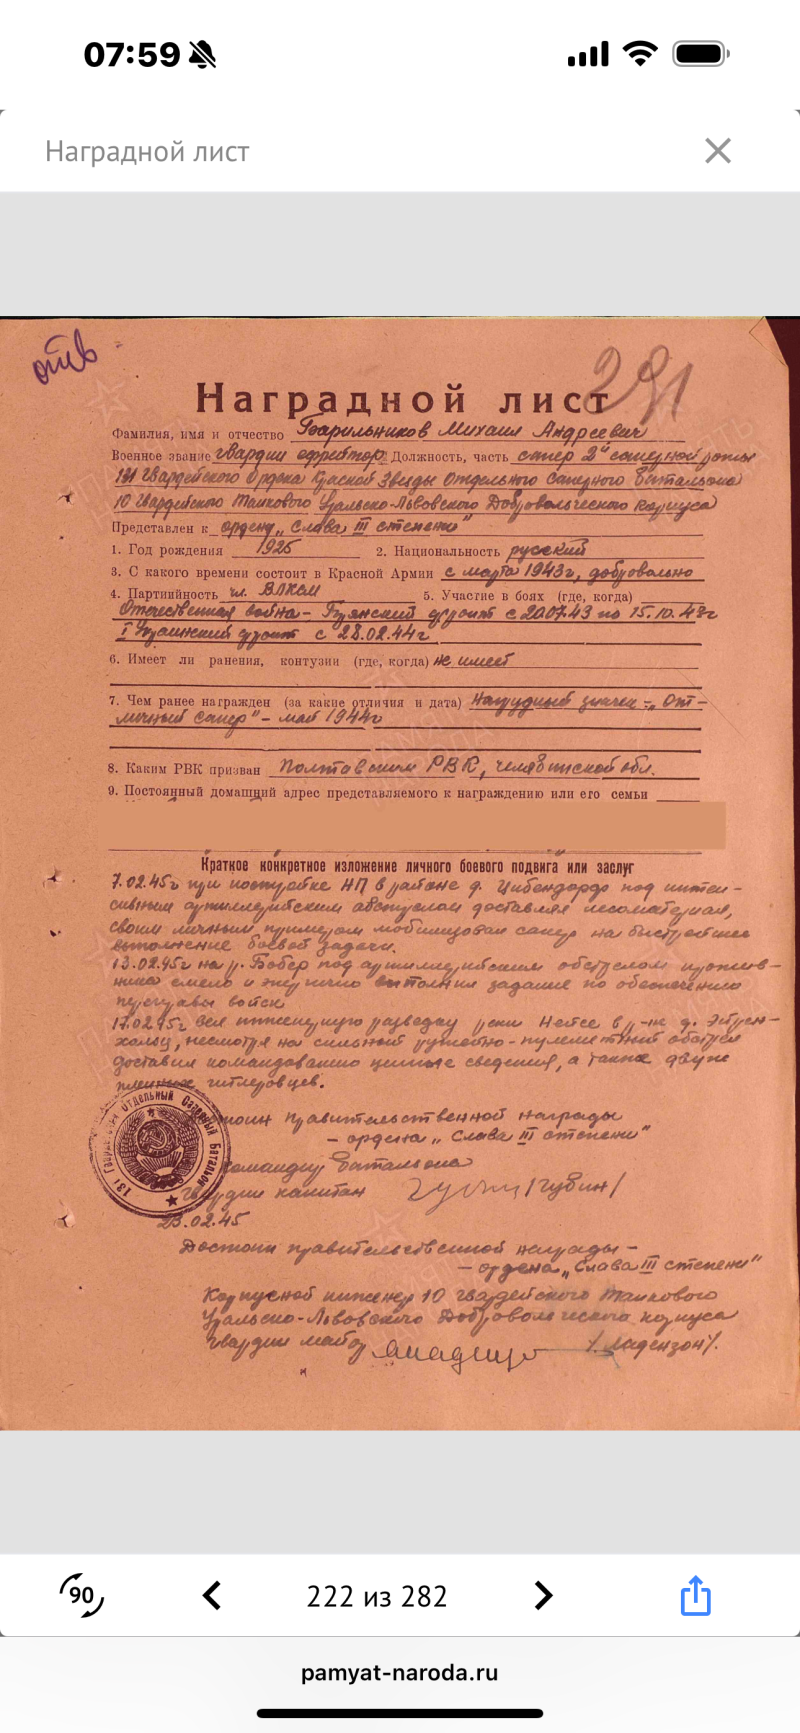 07:59
Наградной лист
отв
291
Наградной лист
Фамилия, имя и отчество Барильников Михаил Андреевич
Военное звание гвардии ефрейтор Должность, часть сапер 2й саперной роты
131 Гвардейского Ордена Красной Звезды Отдельного Саперного Батальона
10 Гвардейского Танкового Уральско-Львовского Добровольческого Корпуса
Представлен к ордену „Слава III степени"
1. Год рождения 1925 2. Национальность русский
3. С какого времени состоит в Красной Армии с марта 1943г, добровольно
4. Партийность чл. ВЛКСМ 5. Участие в боях (где, когда)
Отечественная война - Брянский фронт с 20.07.43 по 15.10.43г
I Украинский фронт с 28.02.44г
6. Имеет ли ранения, контузии (где, когда) не имеет
7. Чем ранее награжден (за какие отличия и дата) Нагрудный значек - „От-
личный сапер" - май 1944г
8. Каким РВК призван Полтавским РВК, Челябинской обл.
9. Постоянный домашний адрес представляемого к награждению или его семьи
Краткое конкретное изложение личного боевого подвига или заслуг
7.02.45г при постройке НП в районе д. Цибендорф под интен-
сивным артиллерийским обстрелом доставлял лесоматериал,
своим личным примером мобилизовал сапер на быстрейшее
выполнение боевой задачи.
13.02.45г на р. Бобер под артиллерийским обстрелом против-
ника смело и энергично выполнял задание по обеспечению
переправы войск
17.02.45г вел инженерную разведку реки Нейсе в р-не д.
хольц, несмотря на сильный ружейно-пулеметный обстрел
доставил командованию ценные сведения, а также двух
пленных гитлеровцев.
Достоин правительственной награды
- ордена „Слава III степени"
Командир Батальона
гвардии капитан /Губин/
23.02.45
131 Гвардейский Отдельный Саперный Батальон
Достоин правительственной награды -
- ордена „Слава III степени"
Корпусной инженер 10 гвардейского Танкового
Уральско-Львовского Добровольческого корпуса
гвардии майор /Ладензон/.
90
222 из 282
pamyat-naroda.ru